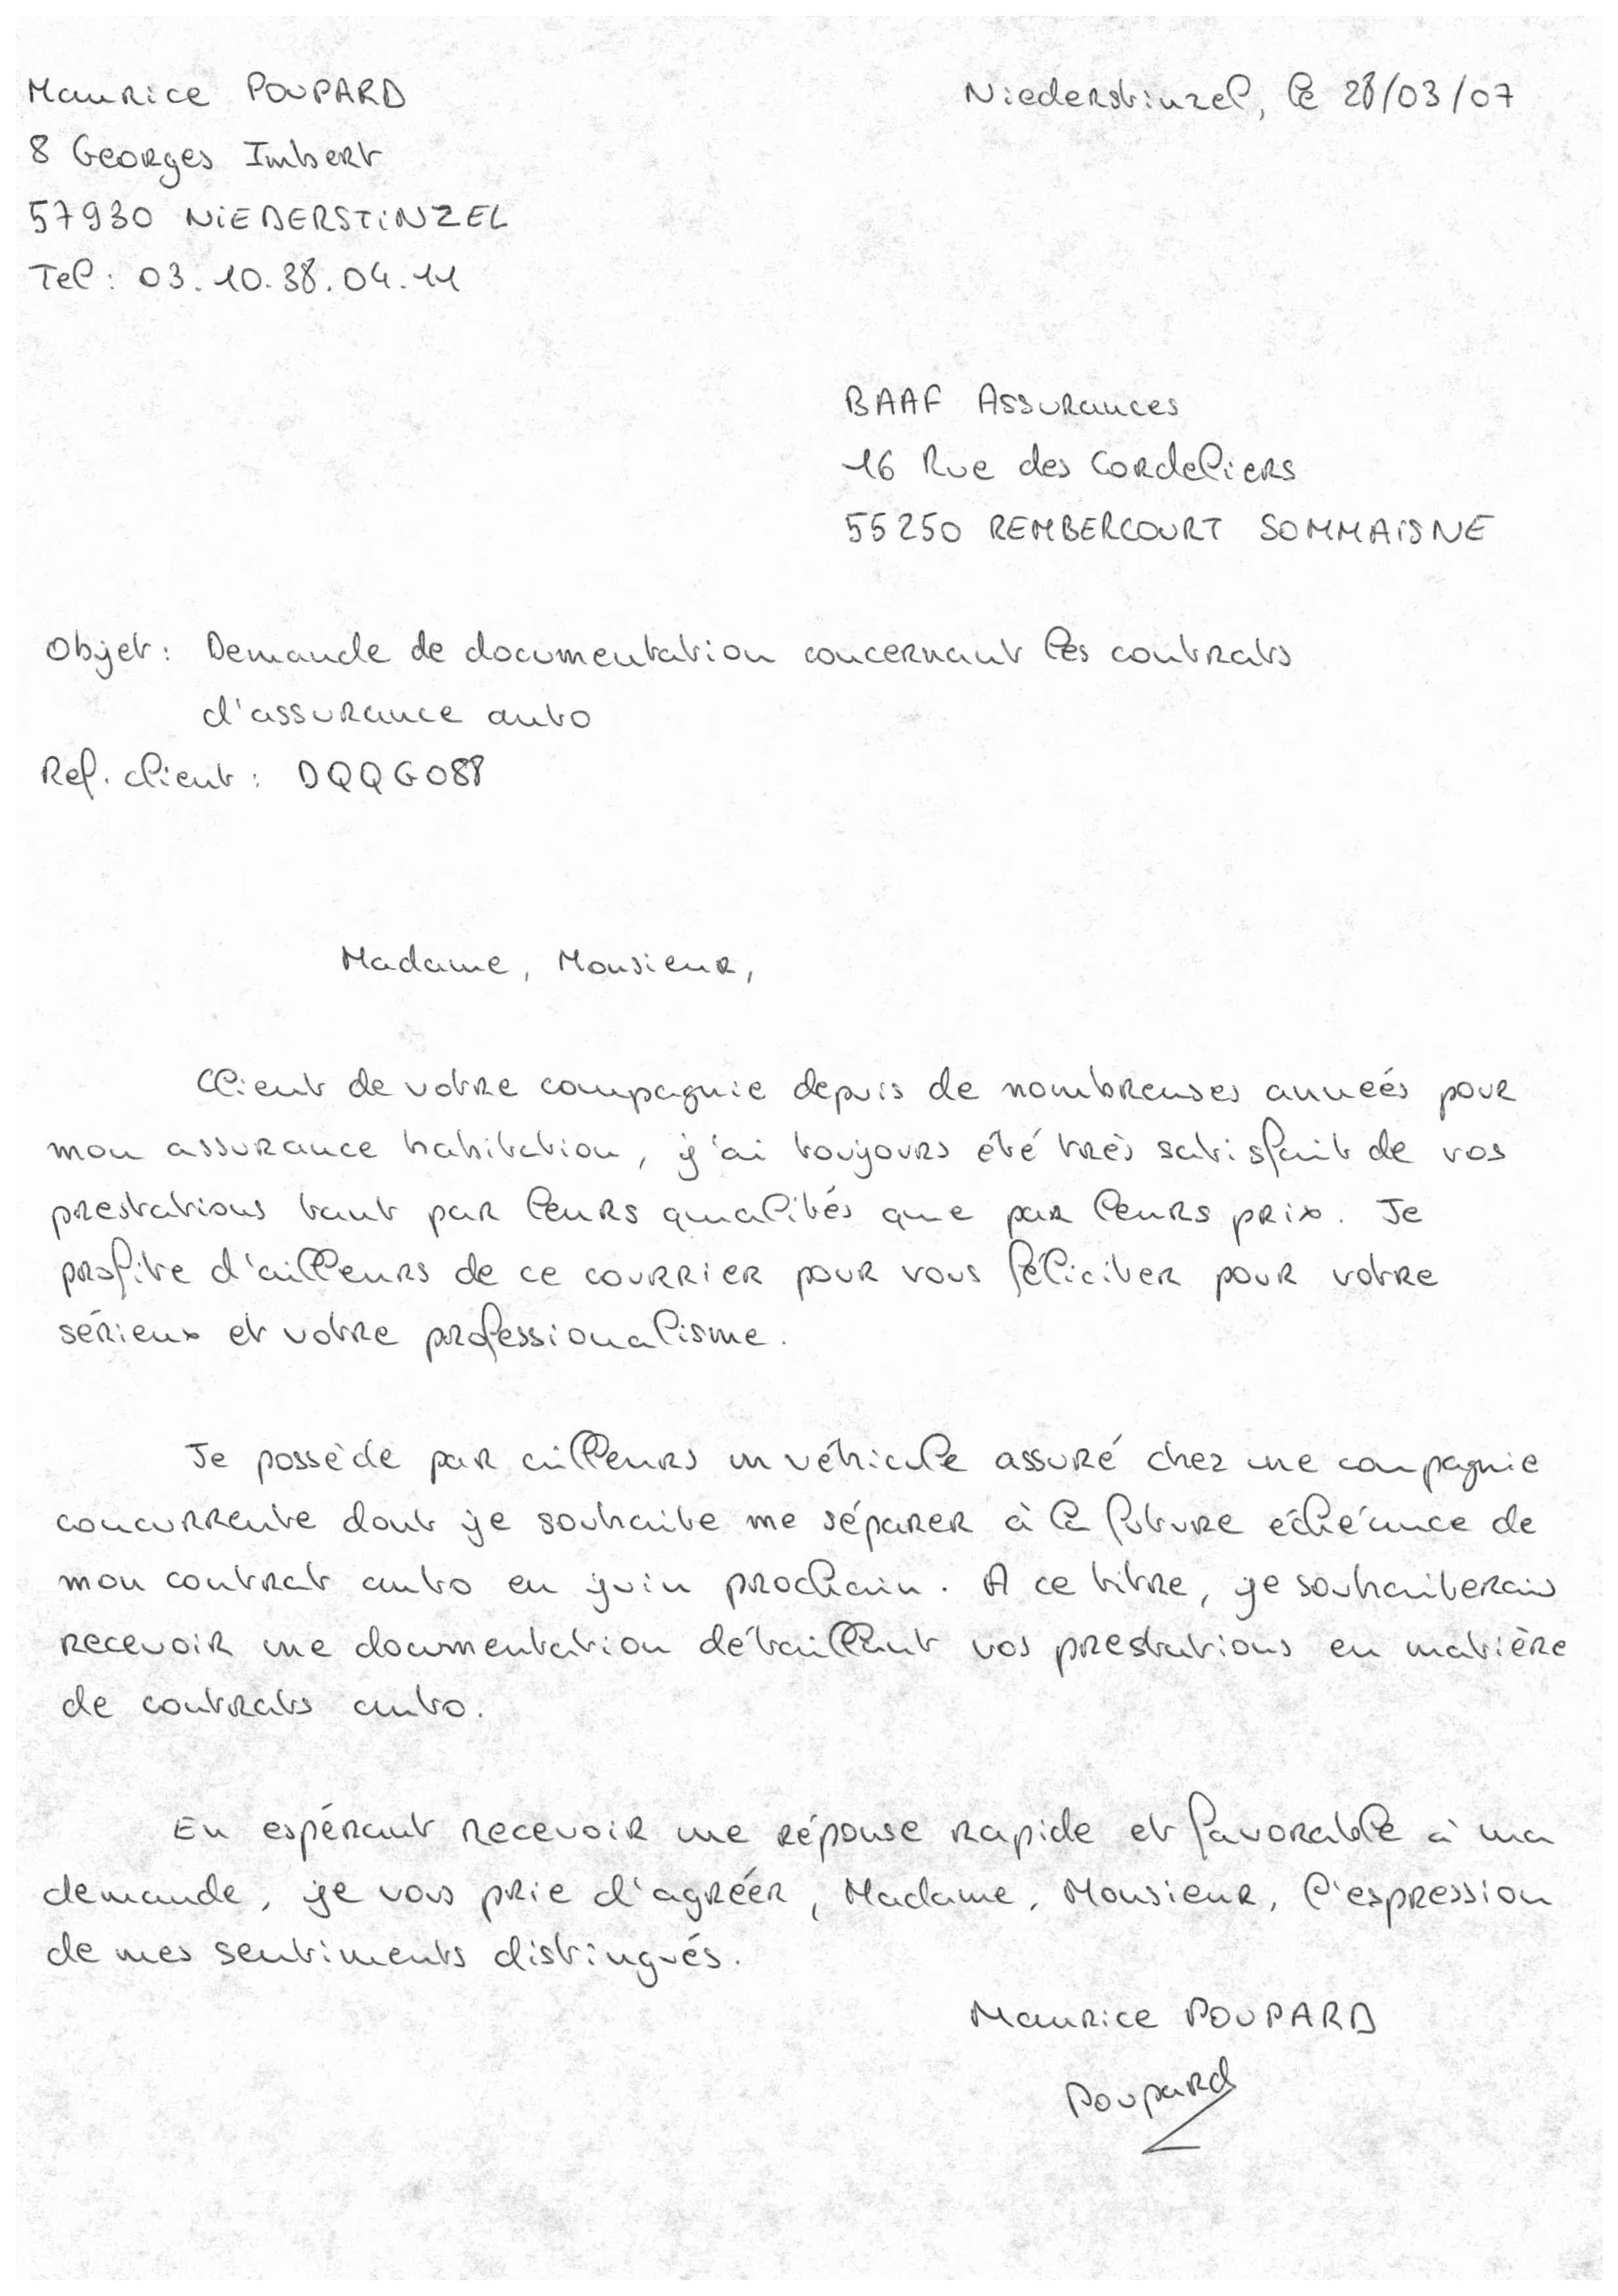 Maurice POUPARD
Niederstinzel, le 28/03/07
8 Georges Imbert
57930 NIEDERSTINZEL
Tel : 03.10.38.04.11
BAAF Assurances
16 Rue des Cordeliers
55250 REMBERCOURT SOMMAISNE
Objet : Demande de documentation concernant les contrats
d'assurance auto
Ref. client : DQQG088
Madame, Monsieur,
Client de votre compagnie depuis de nombreuses années pour
mon assurance habitation, j'ai toujours été très satisfait de vos
prestations tant par leurs qualités que par leurs prix. Je
profite d'ailleurs de ce courrier pour vous féliciter pour votre
sérieux et votre professionalisme.
Je possède par ailleurs un véhicule assuré chez une compagnie
concurrente dont je souhaite me séparer à la future échéance de
mon contrat auto en juin prochain. A ce titre, je souhaiterais
recevoir une documentation détaillant vos prestations en matière
de contrats auto.
En espérant recevoir une réponse rapide et favorable à ma
demande, je vous prie d'agréer, Madame, Monsieur, l'expression
de mes sentiments distingués.
Maurice POUPARD
Poupard